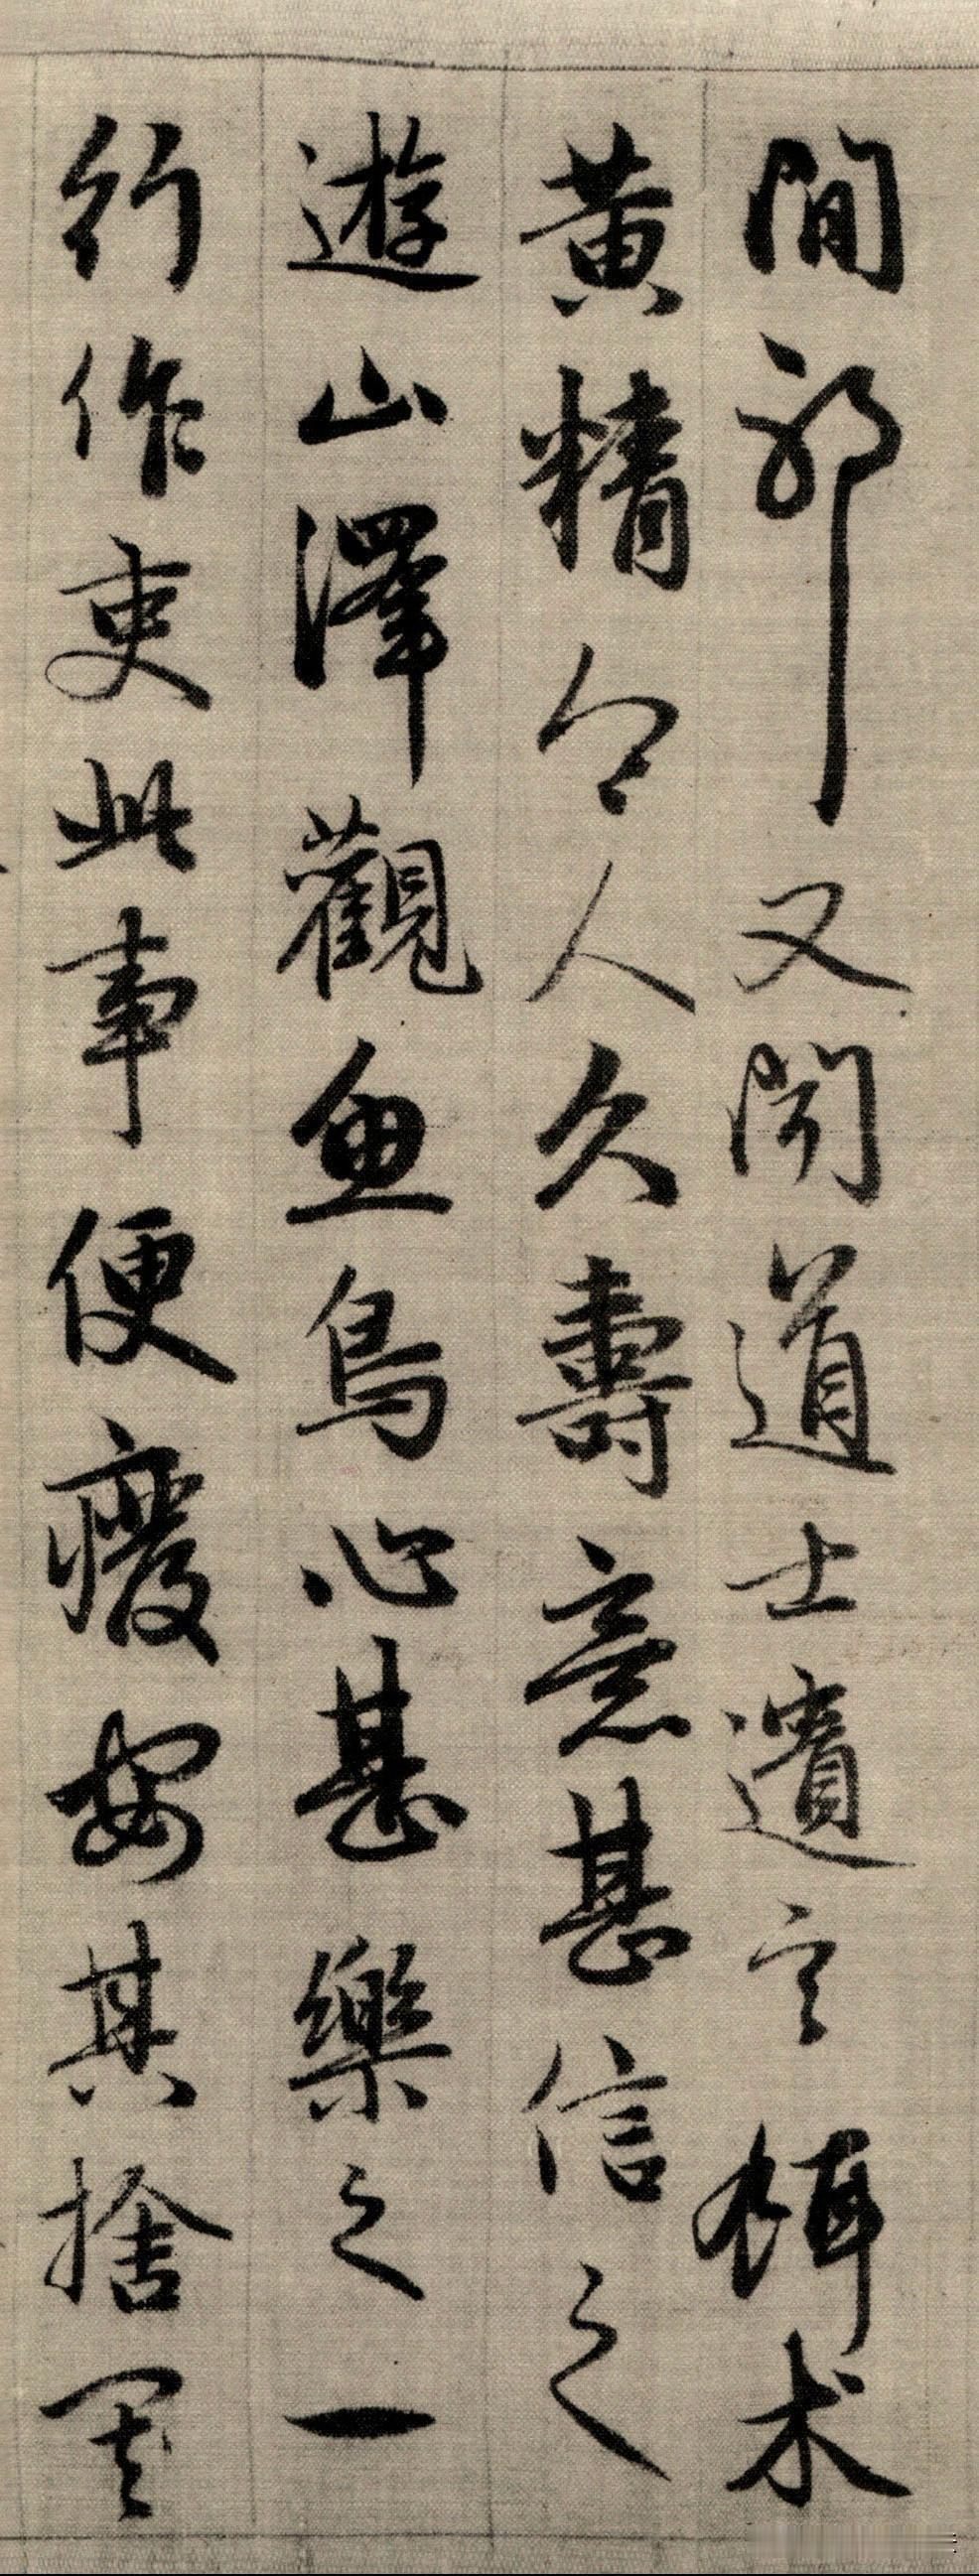 間耶又聞道士遺言餌朮
黃精令人久壽意甚信之
遊山澤觀魚鳥心甚樂之一
行作吏此事便廢安其捨其